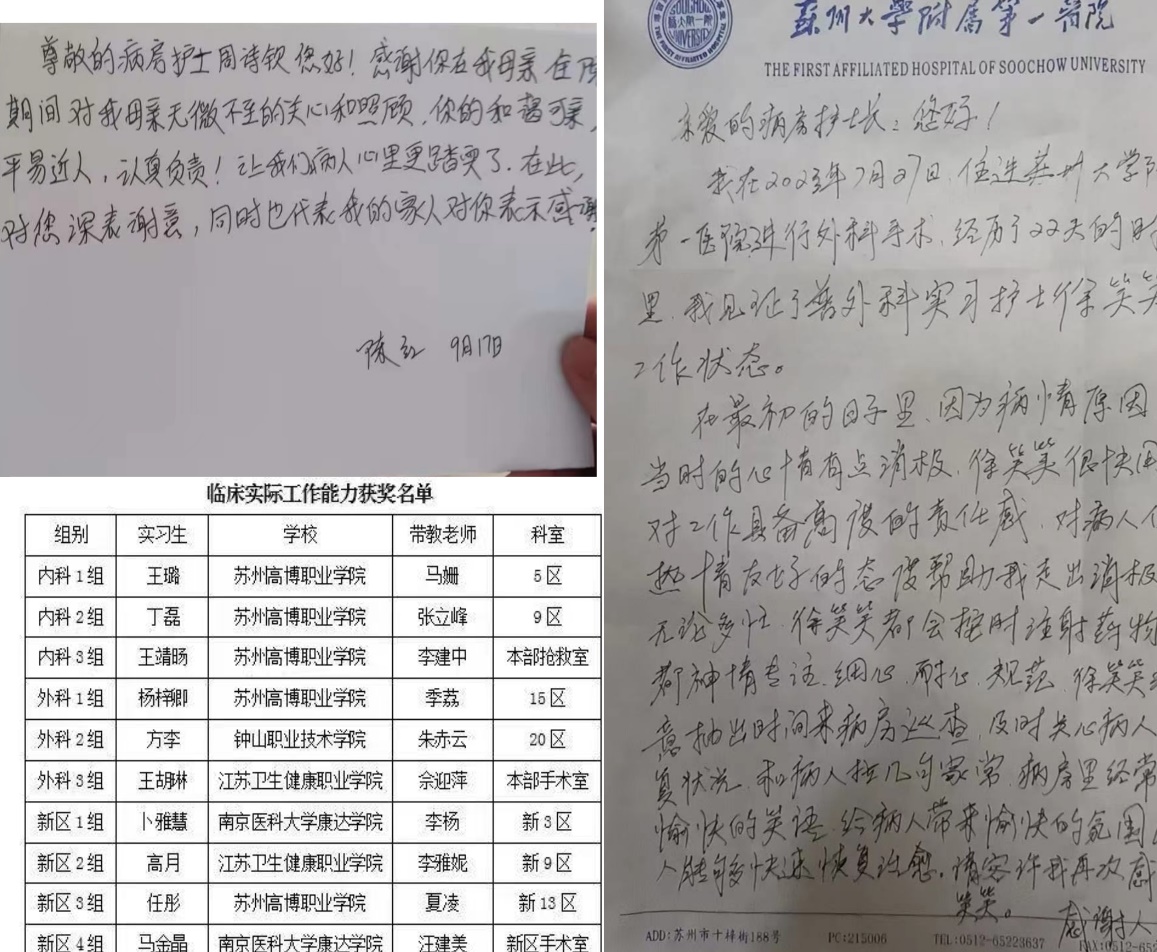 尊敬的病房护士周诗钦您好！感谢你在我母亲住院
期间对我母亲无微不至的关心和照顾，你的和蔼可亲，
平易近人，认真负责！让我们病人心里更踏实了．在此，
对您深表谢意，同时也代表我的家人对你表示感谢．
陈红 9月17日
临床实际工作能力获奖名单
组别 实习生 学校 带教老师 科室
内科1组 王璐 苏州高博职业学院 马姗 5区
内科2组 丁磊 苏州高博职业学院 张立峰 9区
内科3组 王靖旸 苏州高博职业学院 李建中 本部抢救室
外科1组 杨梓卿 苏州高博职业学院 季荔 15区
外科2组 方李 钟山职业技术学院 朱赤云 20区
外科3组 王胡林 江苏卫生健康职业学院 佘迎萍 本部手术室
新区1组 卜雅慧 南京医科大学康达学院 李杨 新3区
新区2组 高月 江苏卫生健康职业学院 李雅妮 新9区
新区3组 任彤 苏州高博职业学院 夏凌 新13区
新区4组 马金晶 南京医科大学康达学院 汪建美 新区手术室
苏州大学附属第一医院
THE FIRST AFFILIATED HOSPITAL OF SOOCHOW UNIVERSITY
亲爱的病房护士长：您好！
我在2023年7月27日，住进苏州大学附
第一医院进行外科手术，经历了22天的时
里，我见证了普外科实习护士徐笑笑
工作状态。
在最初的日子里，因为病情原因
当时的心情有点消极，徐笑笑很快
对工作具备高度的责任感，对病人
热情友好的态度帮助我走出消极
无论多忙，徐笑笑都会按时注射药物
都神情专注、细心、耐心、规范，徐笑笑
意抽出时间来病房巡查，及时关心病人
复状况，和病人拉几句家常，病房里经常
愉快的笑语，给病人带来愉快的氛围
人能够快速恢复治愈。请容许我再次感
笑笑。
感谢人
ADD:苏州市十梓街188号 PC:215006 TEL:0512-65223637 FAX:0512-652